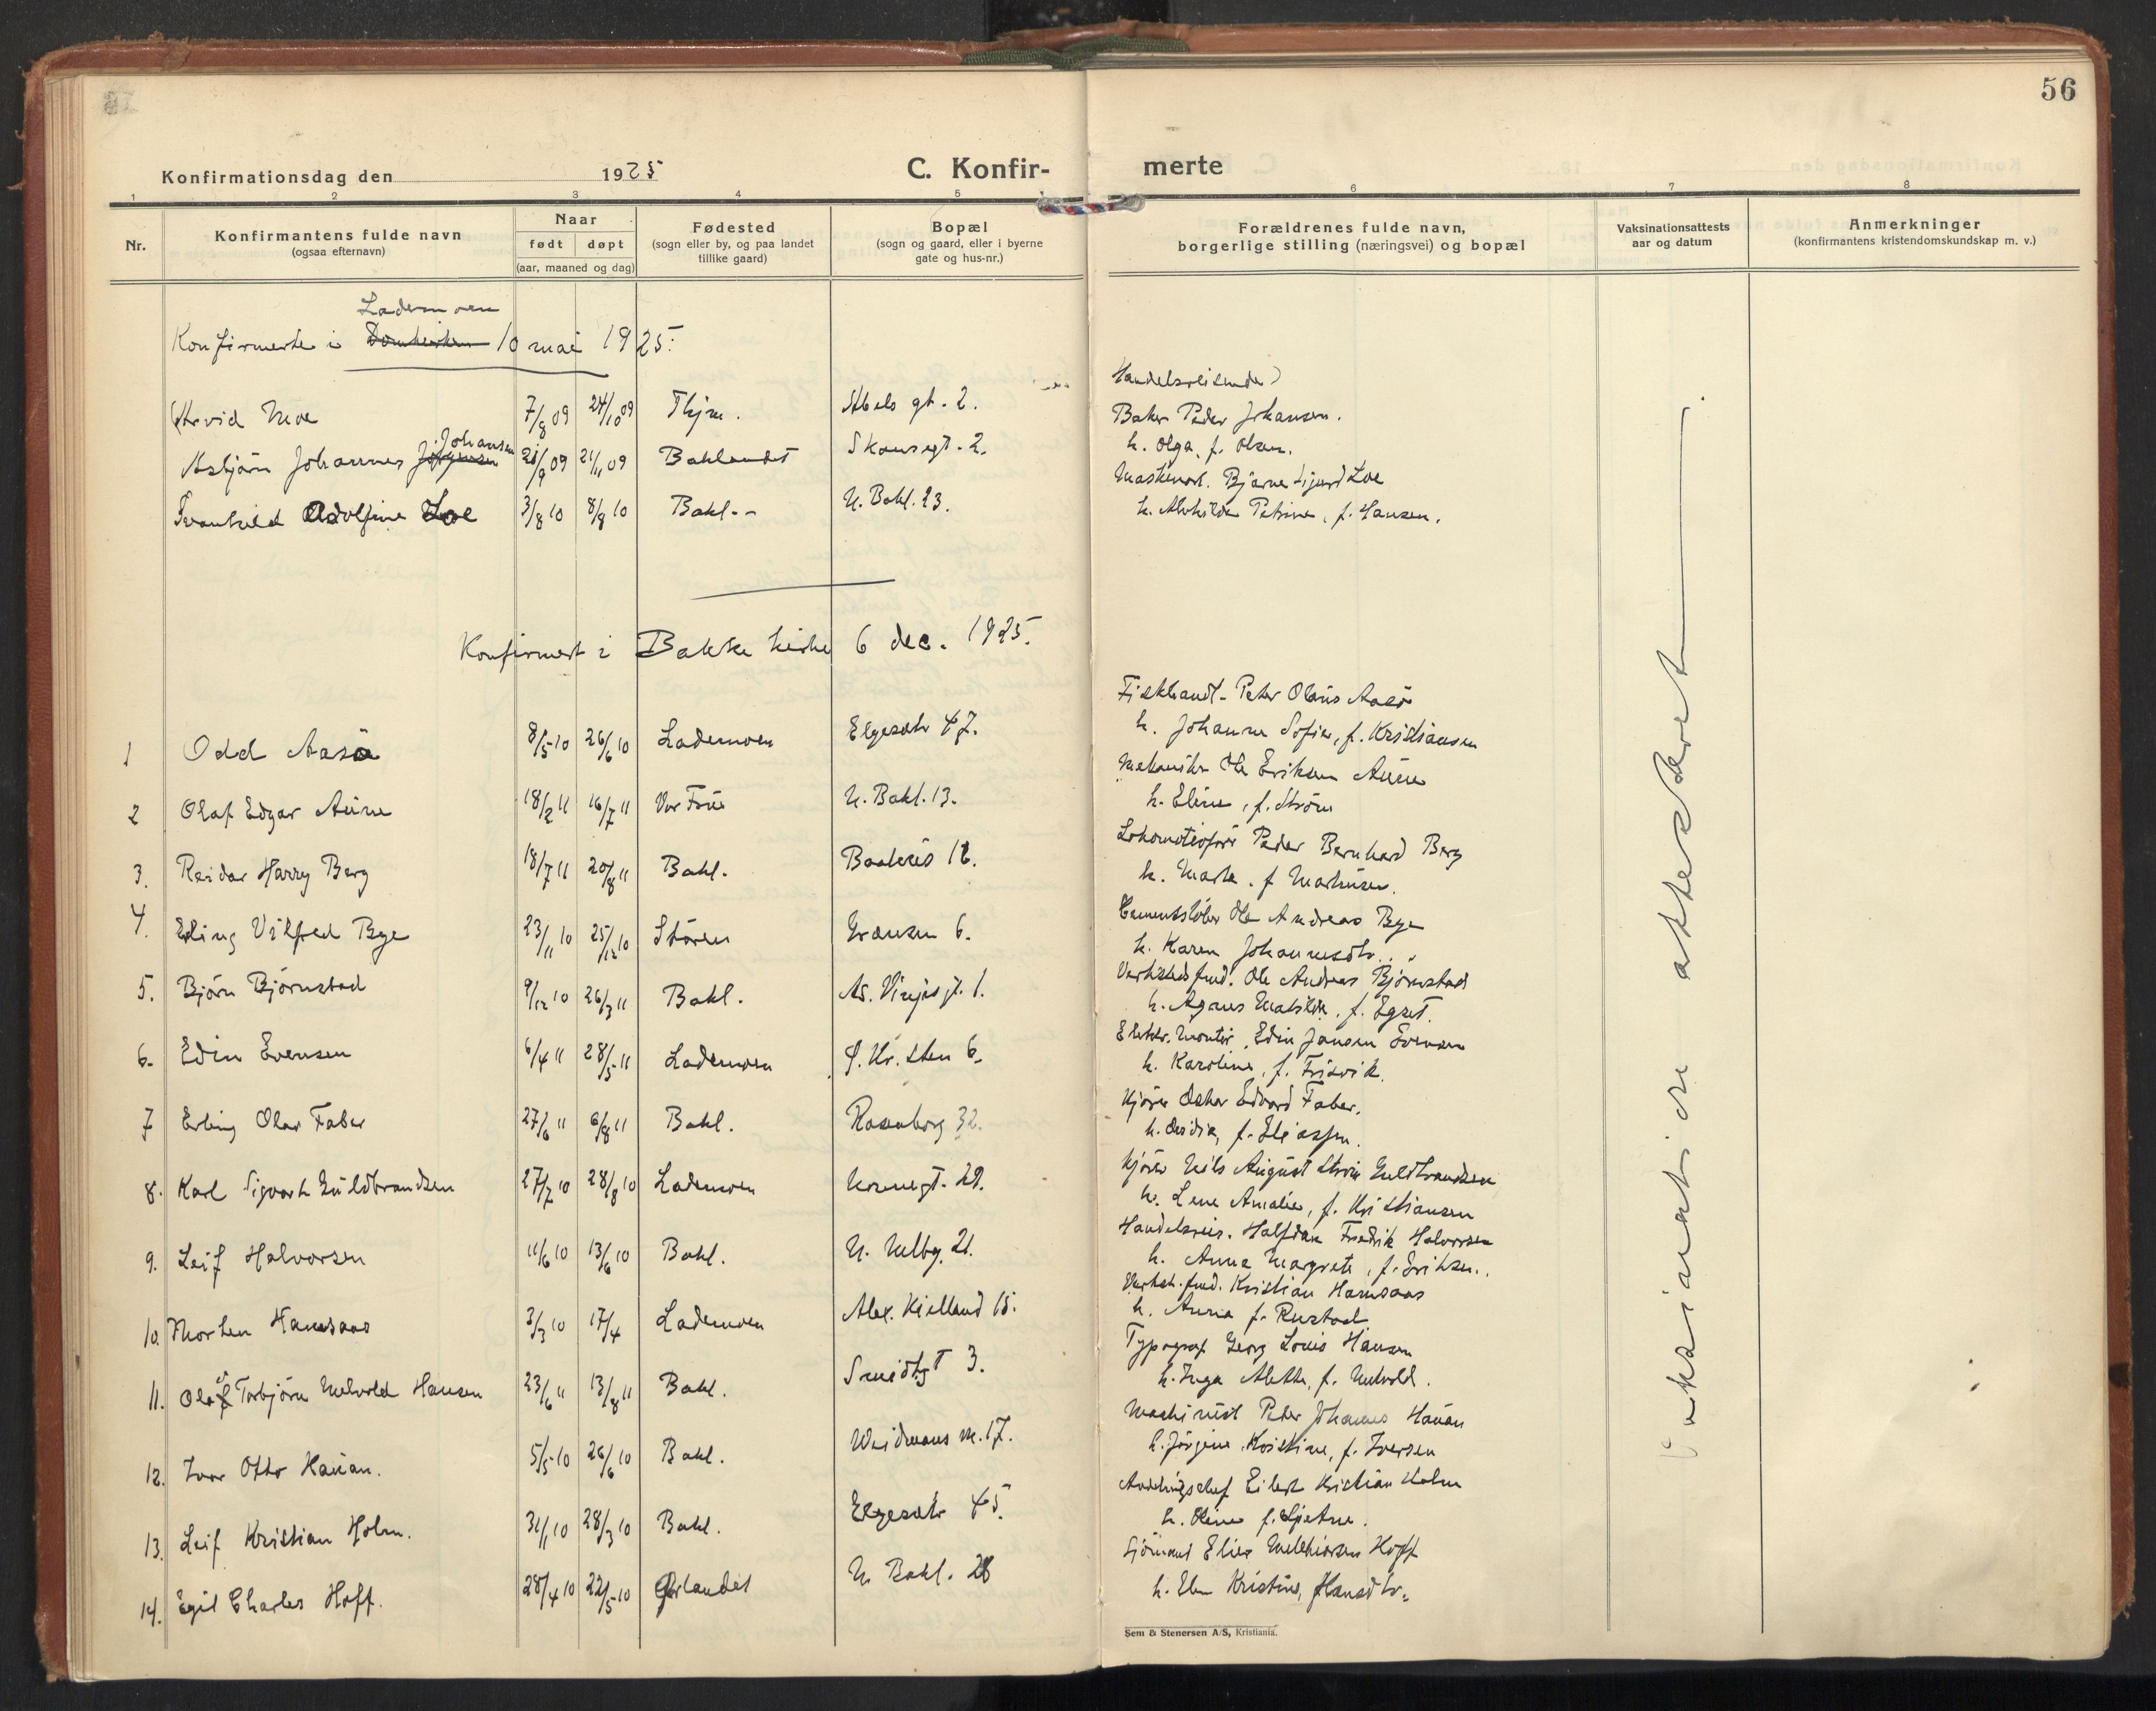 56
Konfirmationsdag den 1925 C. Konfirmerte
1 2 3 4 5 6 7 8
Nr.
Konfirmantens fulde navn
(ogsaa efternavn)
Naar
født døpt
(aar, maaned og dag)
Fødested
(sogn eller by, og paa landet
tillike gaard)
Bopæl
(sogn og gaard, eller i byerne
gate og hus-nr.)
Forældrenes fulde navn,
borgerlige stilling (næringsvei) og bopæl
Vaksinationsattests
aar og datum
Anmerkninger
(konfirmantens kristendomskundskap m. v.)
Lademoen
Konfirmerte i Domkirken 10 mai 1925.
Arvid Moe 7/8 09 24/10 09 Abels gt. 2. Handelsreisende
Johansen
Asbjörn Johannes Jörgensen 21/11 09 Baklandet Skansegt. 2. Baker Peder Johansen.
h. Olga, f. Olsen.
Adolfine Loe 3/8 10 8/8 10 Bakl. N. Bakl. 23. Bjarne Sigurd Loe
h. Petrine, f. Hansen.
Konfirmert i Bakke kirke 6 dec. 1925.
1 Odd Aasö 8/5 10 26/6 10 Lademoen Elgesætr 47. Fiskhandl. Peter Olaus Aasö
h. Johanne Sofie, f. Kristiansen
2 Olaf Edgar Aune 18/2 11 16/7 11 Vor Frue N. Bakl. 13. Mekaniker Ole Eriksen Aune
h. Eline, f. Ström
3. Reidar Harry Berg 18/7 11 20/8 11 Bakl. Lokomotivför Peder Bernhard Berg
h. Marta, f. Markusen.
4. Erling Vilfred Bye 23/11 10 25/12 10 Stören 6. Cementstöber Ole Andreas Bye
h. Karen Johannesdtr.
5. Björn Björnstad 9/12 10 26/3 11 Bakl. Aa. Vinjesgt. 1. Verkstedsfmd. Ole Andreas Björnstad
h. Agnes Matilde, f. Egset.
6. Edin Evensen 6/4 11 28/5 11 Lademoen 6. Elektr. Montör Edin Jansen Evensen
h. Karoline, f. Frisvik.
7 Erling Olav Faber 27/6 11 6/8 11 Bakl. Rosenborg 32. Kjörer Oskar Edvard Faber.
h. f. Eliassen.
8. Karl Sigvart Guldbrandsen 27/7 10 28/8 10 Lademoen 29. Kjörer Nils August Guldbrandsen
h. Lene Amalie, f. Kristiansen
9. Leif Halvorsen 11/6 10 13/6 10 Bakl. 21. Handelsreis. Halfdan Fredrik Halvorsen
h. Anna Margrete, f. Eriksen.
10. Morten Hamsaas 3/3 10 17/4 Lademoen Alex. Kielland 15. Verkst. fmd. Kristian Hamsaas
h. Anna f. Rustad
11. Olaf Torbjörn Melvold Hansen 23/6 11 13/8 11 Bakl. Smidtsgt 3. Typograf Georg Louis Hansen
h. Inga Alette, f. Melvold.
12. Ivar Otto Hauan. 5/5 10 26/6 10 Bakl. Weidmans v. 17. Maskinist Peder Johannes Hauan
h. Jörgine Kristine, f. Iversen
13. Leif Kristian Holm. 31/1 10 28/3 10 Bakl. Elgesætr 45. Avdelingschef Eilert Kristian Holm
h. Oline f. Gjetne.
14. Egil Charles Hoff. 28/4 10 22/5 10 Örlandet N. Bakl. 28 Sjömand Elias Melkiorsen Hoff
h. Elen Kristine, Hansdtr.
Vaksinationen attestert
Sem & Stenersen A/S, Kristiania.